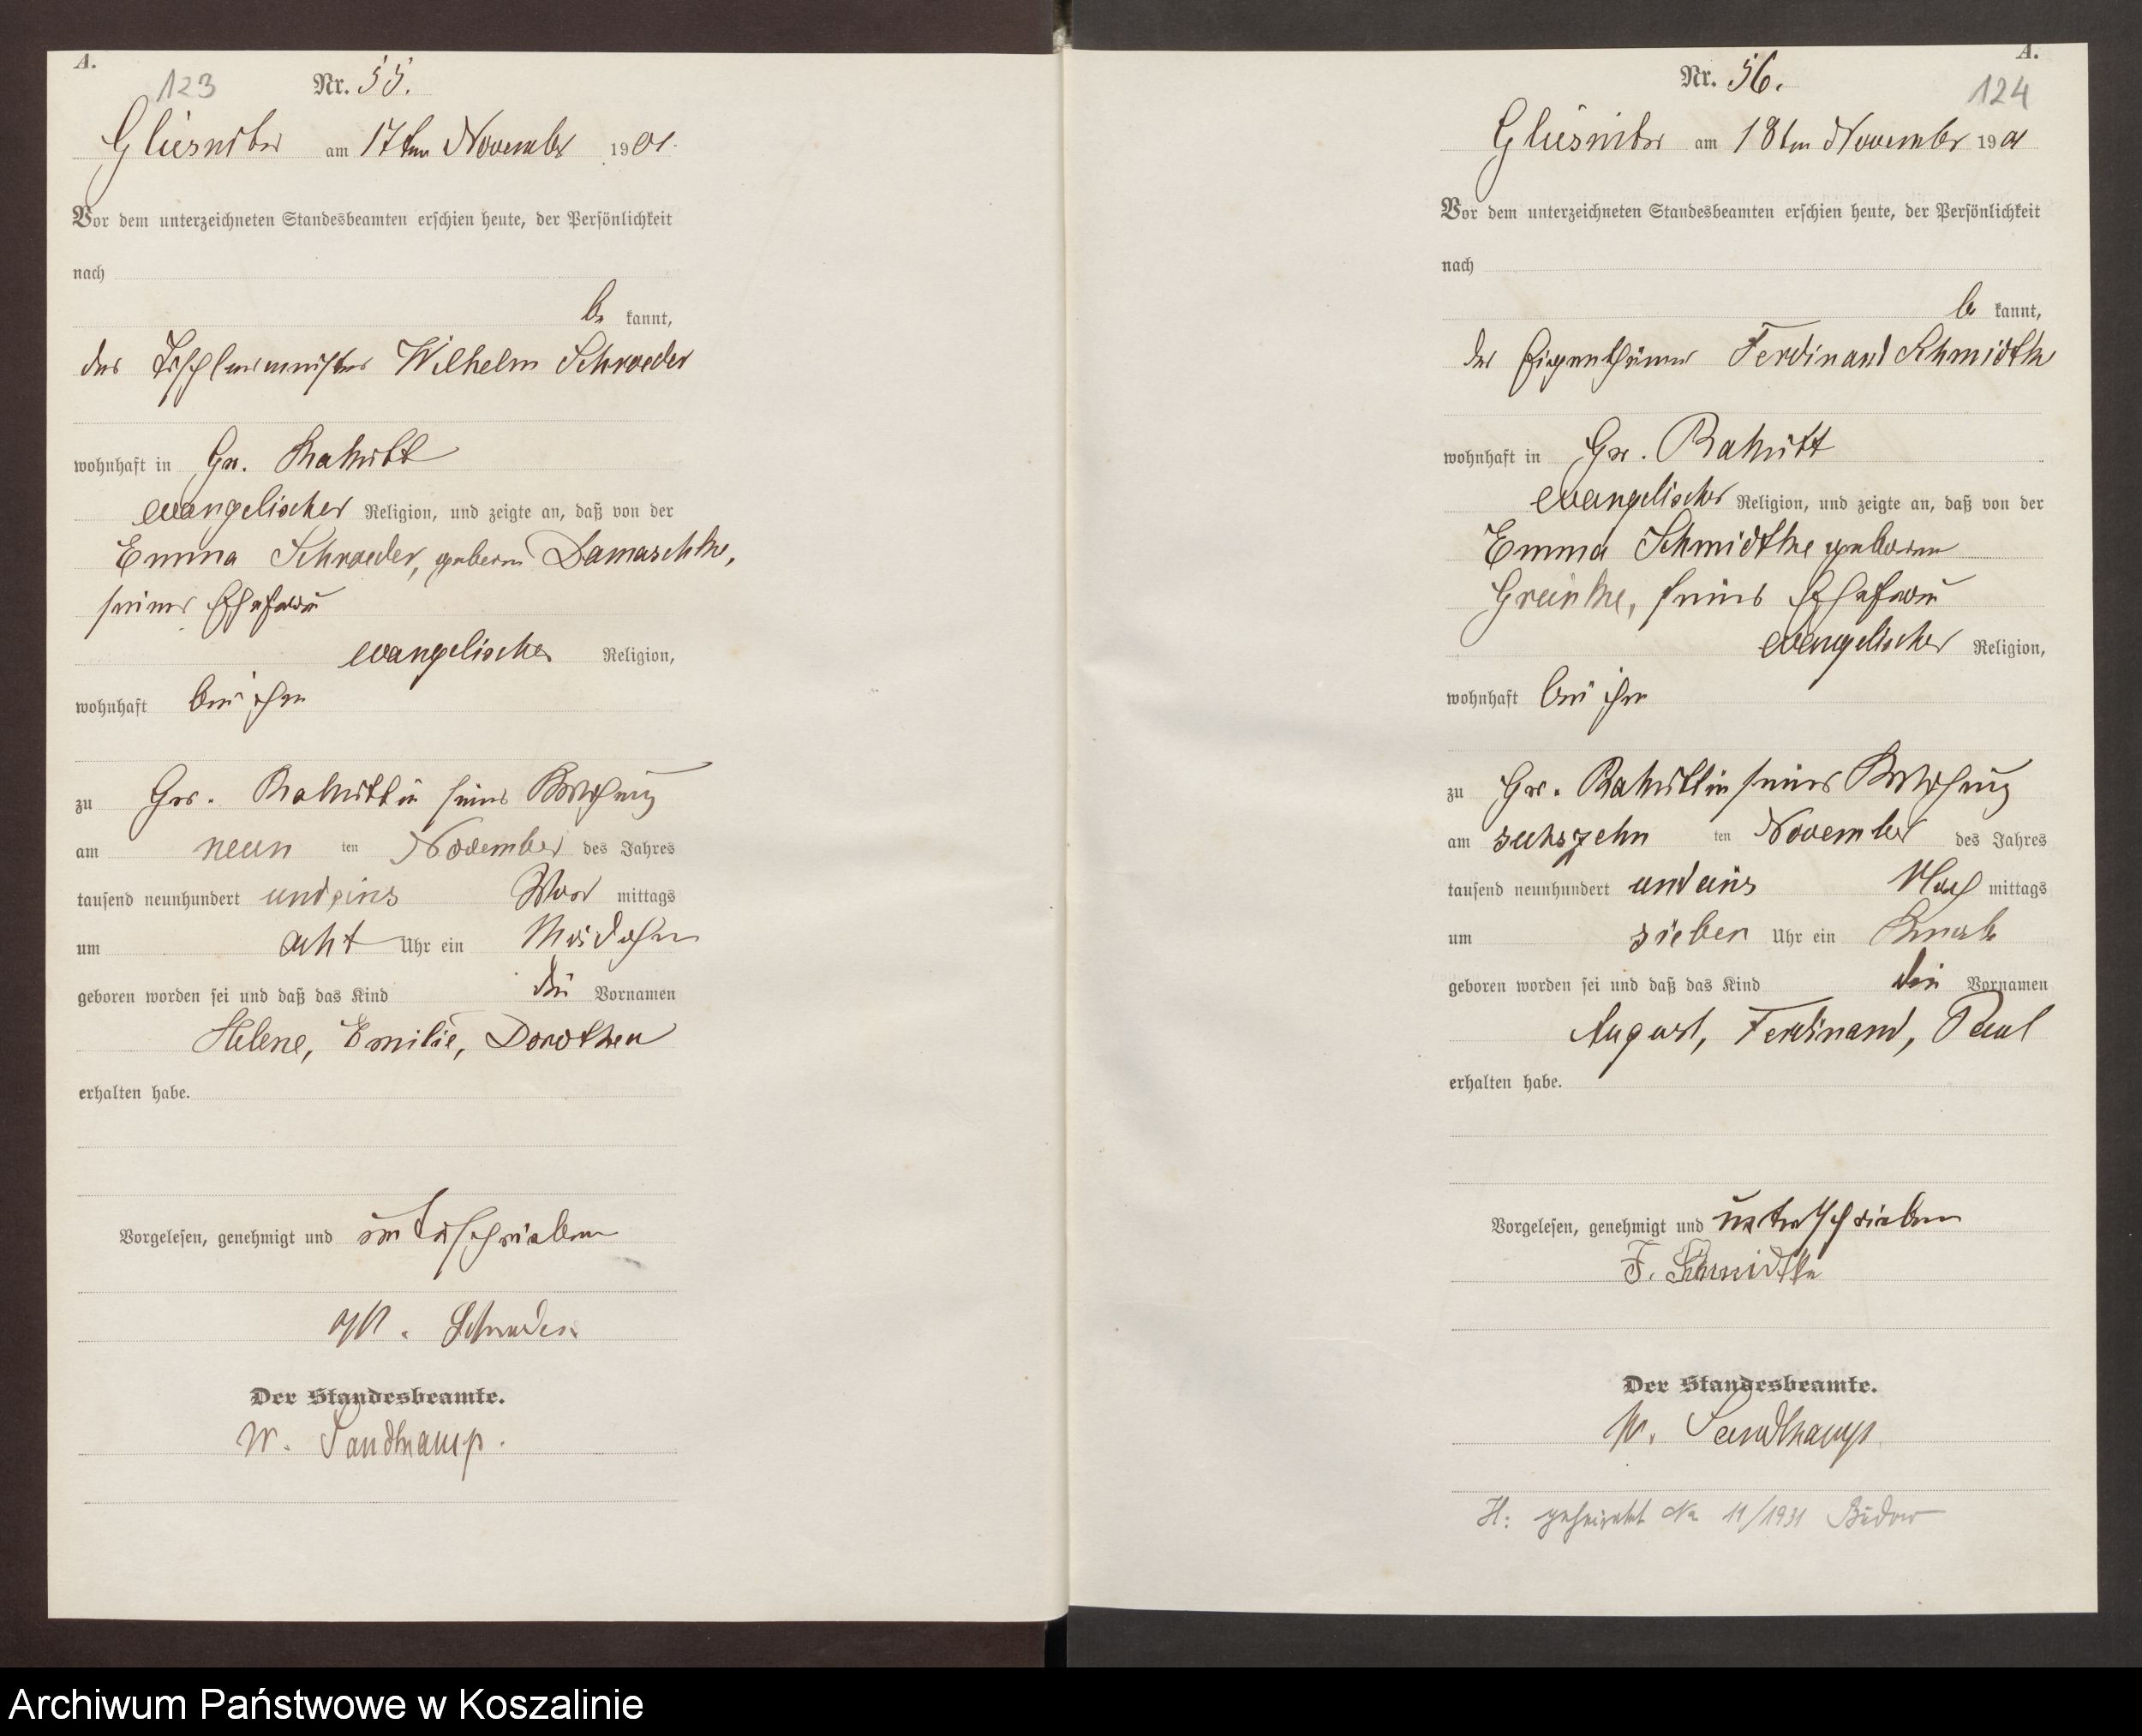 A.
123 Nr. 55.
Gliesnitz am 17ten November 1901.
Vor dem unterzeichneten Standesbeamten erschien heute, der Persönlichkeit
nach
be kannt,
der Tischlermeister Wilhelm Schroeder
wohnhaft in Gr. Rakitt
evangelischer Religion, und zeigte an, daß von der
Emma Schroeder, geboren Damaschke,
seiner Ehefrau
evangelischer Religion,
wohnhaft bei ihm
zu Gr. Rakitt in seiner Wohnung
am neun ten November des Jahres
tausend neunhundert und eins Vor mittags
um acht Uhr ein Mädchen
geboren worden sei und daß das Kind die Vornamen
Helene, Emilie, Dorothea
erhalten habe.
Vorgelesen, genehmigt und unterschrieben
W. Schroeder
Der Standesbeamte.
W. Sandkamp.
A.
Nr. 56. 124
Gliesnitz am 18ten November 1901
Vor dem unterzeichneten Standesbeamten erschien heute, der Persönlichkeit
nach
be kannt,
der Eigenthümer Ferdinand Schmidtke
wohnhaft in Gr. Rakitt
evangelischer Religion, und zeigte an, daß von der
Emma Schmidtke geborene
Greinke, seiner Ehefrau
evangelischer Religion,
wohnhaft bei ihm
zu Gr. Rakitt in seiner Wohnung
am sechszehn ten November des Jahres
tausend neunhundert und eins Nach mittags
um sieben Uhr ein Knabe
geboren worden sei und daß das Kind die Vornamen
August, Ferdinand, Paul
erhalten habe.
Vorgelesen, genehmigt und unterschrieben
F. Schmidtke
Der Standesbeamte.
W. Sandkamp
H: geheiratet No 11/1931 Budow
Archiwum Państwowe w Koszalinie